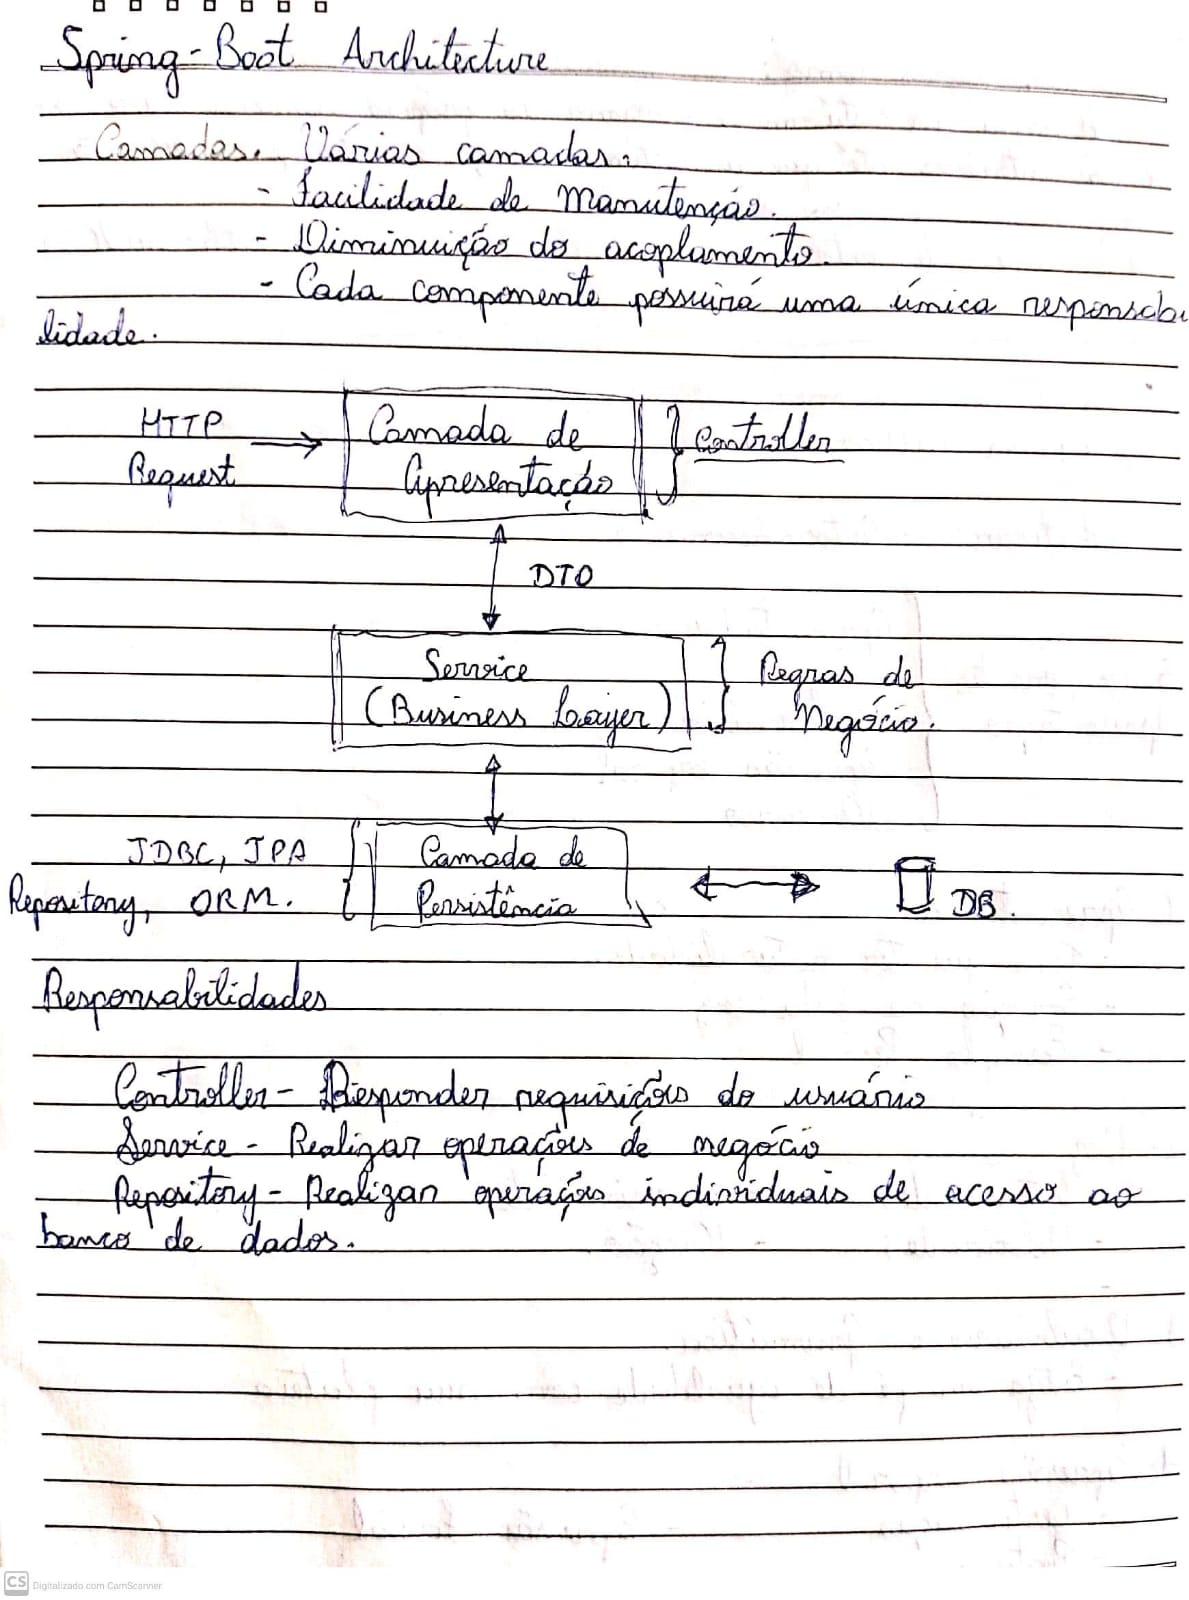 Spring-Boot Architecture
Camadas. Várias camadas:
- Facilidade de Manutenção.
- Diminuição do acoplamento.
- Cada componente possuirá uma única responsabi
lidade.
HTTP
Request
Camada de
Apresentação
Controller
DTO
Service
(Business Layer)
Regras de
Negócio.
JDBC, JPA
Repository, ORM.
Camada de
Persistência
DB.
Responsabilidades
Controller - Responder requisições do usuário
Service - Realizar operações de negócio
Repository - Realizar operações individuais de acesso ao
banco de dados.
CS Digitalizado com CamScanner